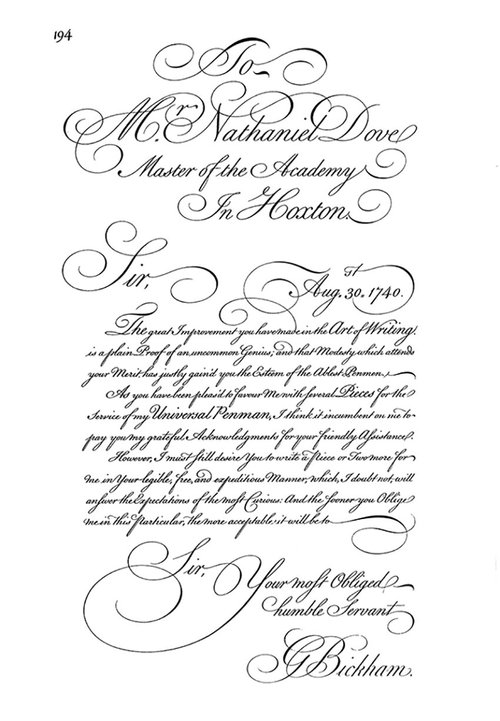 194
To
Mr. Nathaniel Dove
Master of the Academy
In Hoxton.
Sir,
Aug. 30.st 1740.
The great Improvement you have made in the Art of Writing,
is a plain Proof of an uncommon Genius; and that Modesty, which attends
your Merit, has justly gain'd you the Esteem of the Ablest Penmen.
As you have been pleas'd to favour Me with ſeveral Pieces for the
Service of my Universal Penman, I think it incumbent on me to
pay you my grateful Acknowledgments for your friendly Aſsistance.
However, I muſt ſtill desire You to write a Piece or Two more for
me in Your legible, free, and expeditious Manner, which, I doubt not, will
anſwer the Expectations of the moſt Curious: And the ſooner you Oblige
me in this Particular, the more acceptable it will be to
Sir,
Your moſt Obliged
humble Servant
G Bickham.